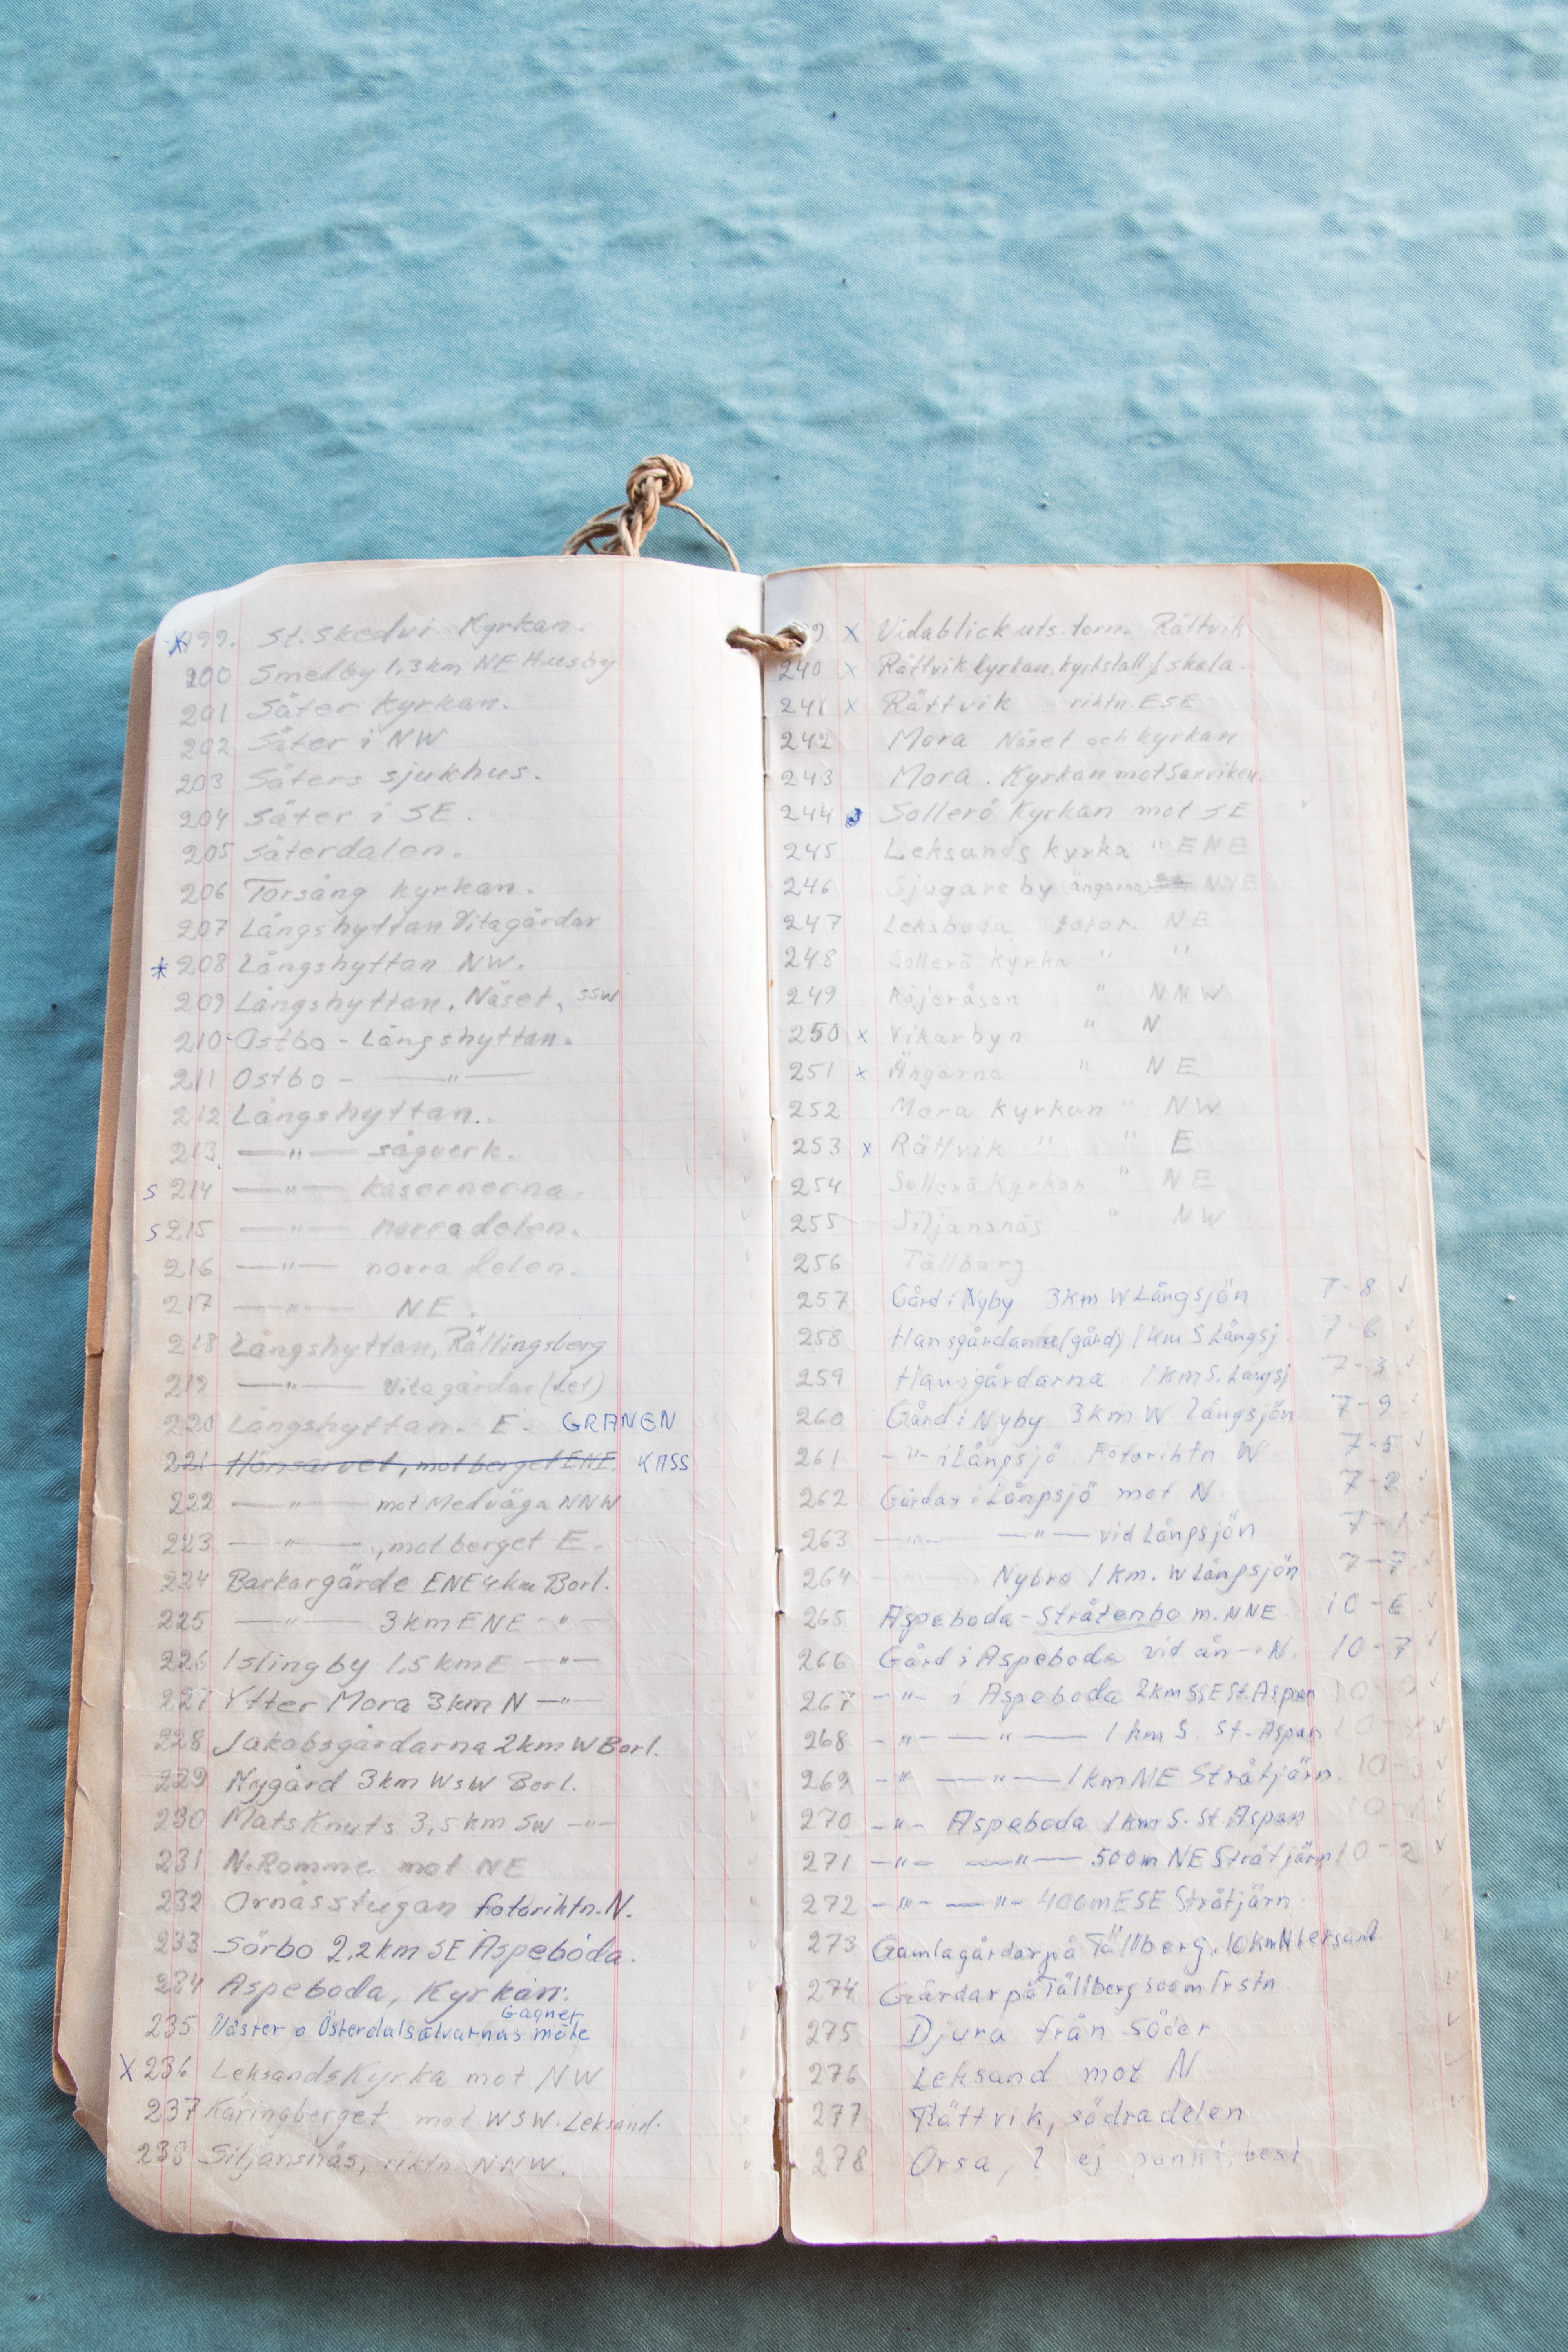 * 199. St. Skedvi Kyrkan.
200 Smedby 1,3 km NE Husby
201 Säter Kyrkan.
202 Säter i NW
203 Säters sjukhus.
204 Säter i SE.
205 Säterdalen.
206 Torsång kyrkan.
207 Långshyttan Vitagårdar
* 208 Långshyttan NW.
209 Långshyttan. Näset, SSW
210 Ostbo - Långshyttan.
211 Ostbo - —"—
212 Långshyttan.
213. —"— sågverk.
S 214 —"— kasernerna.
S 215 —"— norra delen.
216 —"— norra delen.
217 —"— NE.
218 Långshyttan, Rällingsberg
219 —"— Vitagårdar
220 Långshyttan. E. GRANEN
221 Hönsarvet, mot berget ENE. KASS
222 —"— mot Medväga NNW
223 —"—, mot berget E.
224 Barkargärde ENE 4 km Borl.
225 —"— 3 km ENE —"—
226 Islingby 1,5 km E —"—
227 Ytter Mora 3 km N —"—
228 Jakobsgårdarna 2 km W Borl.
229 Nygård 3 km WSW Borl.
230 Mats Knuts 3,5 km SW —"—
231 N. Romme mot NE
232 Ornässtugan fotoriktn. N.
233 Sörbo 2,2 km SE Aspeboda.
234 Aspeboda, Kyrkan.
Gagnef
235 Väster o Österdalsälvarnas möte
X 236 Leksands Kyrka mot NW
237 Käringberget mot WSW. Leksand.
238 Siljansnäs, riktn. NNW.
9 x Vidablick uts. torn. Rättvik
240 x Rättvik kyrkan, kyrkstall skola.
241 x Rättvik riktn. ESE
242 Mora Näset och kyrkan
243 Mora. Kyrkan mot Saxviken.
244 Sollerö Kyrkan mot SE
245 Leksands kyrka " ENE
246 Sjugareby ängarna, NNE
247 Leksboda fotor. NE
248 Sollerö Kyrka " "
249 Röjeråsen " NNW
250 x Vikarbyn " N
251 x Ängarna " NE
252 Mora Kyrkan " NW
253 x Rättvik " " E
254 Sollerö Kyrkan " NE
255 Siljansnäs " NW
256 Tällberg
257 Gård i Nyby 3 km W Långsjön 7-8 ✓
258 Hansgårdarna (gård) 1 km S Långsj. 7-6 ✓
259 Hansgårdarna 1 km S. Långsj 7-3 ✓
260 Gård i Nyby 3 km W Långsjön 7-9
261 -"- i Långsjö Fotoriktn W 7-5 ✓
262 Gårdar i Långsjö mot N 7-2 ✓
263 —"— —"— vid Långsjön 7-1
264 Nybro 1 km. W Långsjön 7-7
265 Aspeboda - Stråtenbo m. NNE 10-6 ✓
266 Gård i Aspeboda vid ån - N. 10-7 ✓
267 -"- i Aspeboda 2 km SSE St. Aspan
268 -"- —"— 1 km S. St. Aspan ✓
269 -"- —"— 1 km NE Stråtjärn. 10-3 ✓
270 -"- Aspeboda 1 km S. St. Aspan
271 -"- —"— 500 m NE Stråtjärn 10-2 ✓
272 -"- —"- 400 m ESE Stråtjärn.
273 Gamla gårdar på Tällberg. 10 km N
274 Gårdar på Tällberg 500 m fr stn
275 Djura från Söder
276 Leksand mot N
277 Rättvik, södra delen
278 Orsa, ? ej punkt best